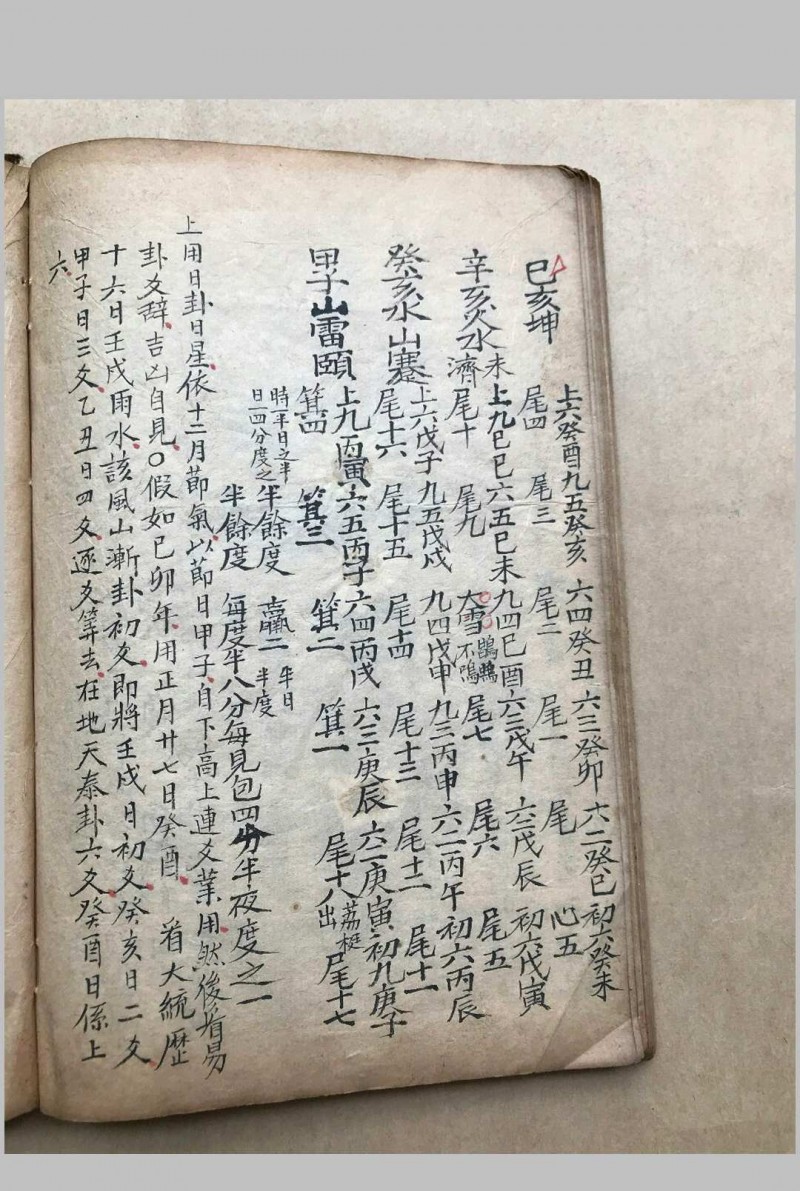 己亥坤
上六癸酉九五癸亥六四癸丑六三癸卯六二癸巳初六癸未
尾四尾三尾二尾一尾心五
辛亥火水未濟
上九己巳六五己未九四己酉六三戊午六二戊辰初六戊寅
尾十尾九大雪鶡鴠不鳴尾七尾六尾五
癸亥水山蹇
上六戊子九五戊戌九四戊申九三丙申六二丙午初六丙辰
尾十六尾十五尾十四尾十三尾十二尾十一
甲子山雷頤
上九丙寅六五丙子六四丙戌六三庚辰六二庚寅初九庚子
箕四箕三箕二箕一尾十八荔梃出尾十七
時一半日之半日一四分度之半餘度贏二半日半度
半餘度每度半八分每見包四分半夜度之一
上用日卦日星依十二月節氣以節日甲子自下高上連爻葉用然後看易
卦爻辞吉凶自見〇假如己卯年用正月廿七日癸酉看大統歷
十六日壬戌雨水該風山漸卦初爻即將壬戌日初爻癸亥日二爻
甲子日三爻乙丑日四爻逐爻筭去在地天泰卦六爻癸酉日係上
六